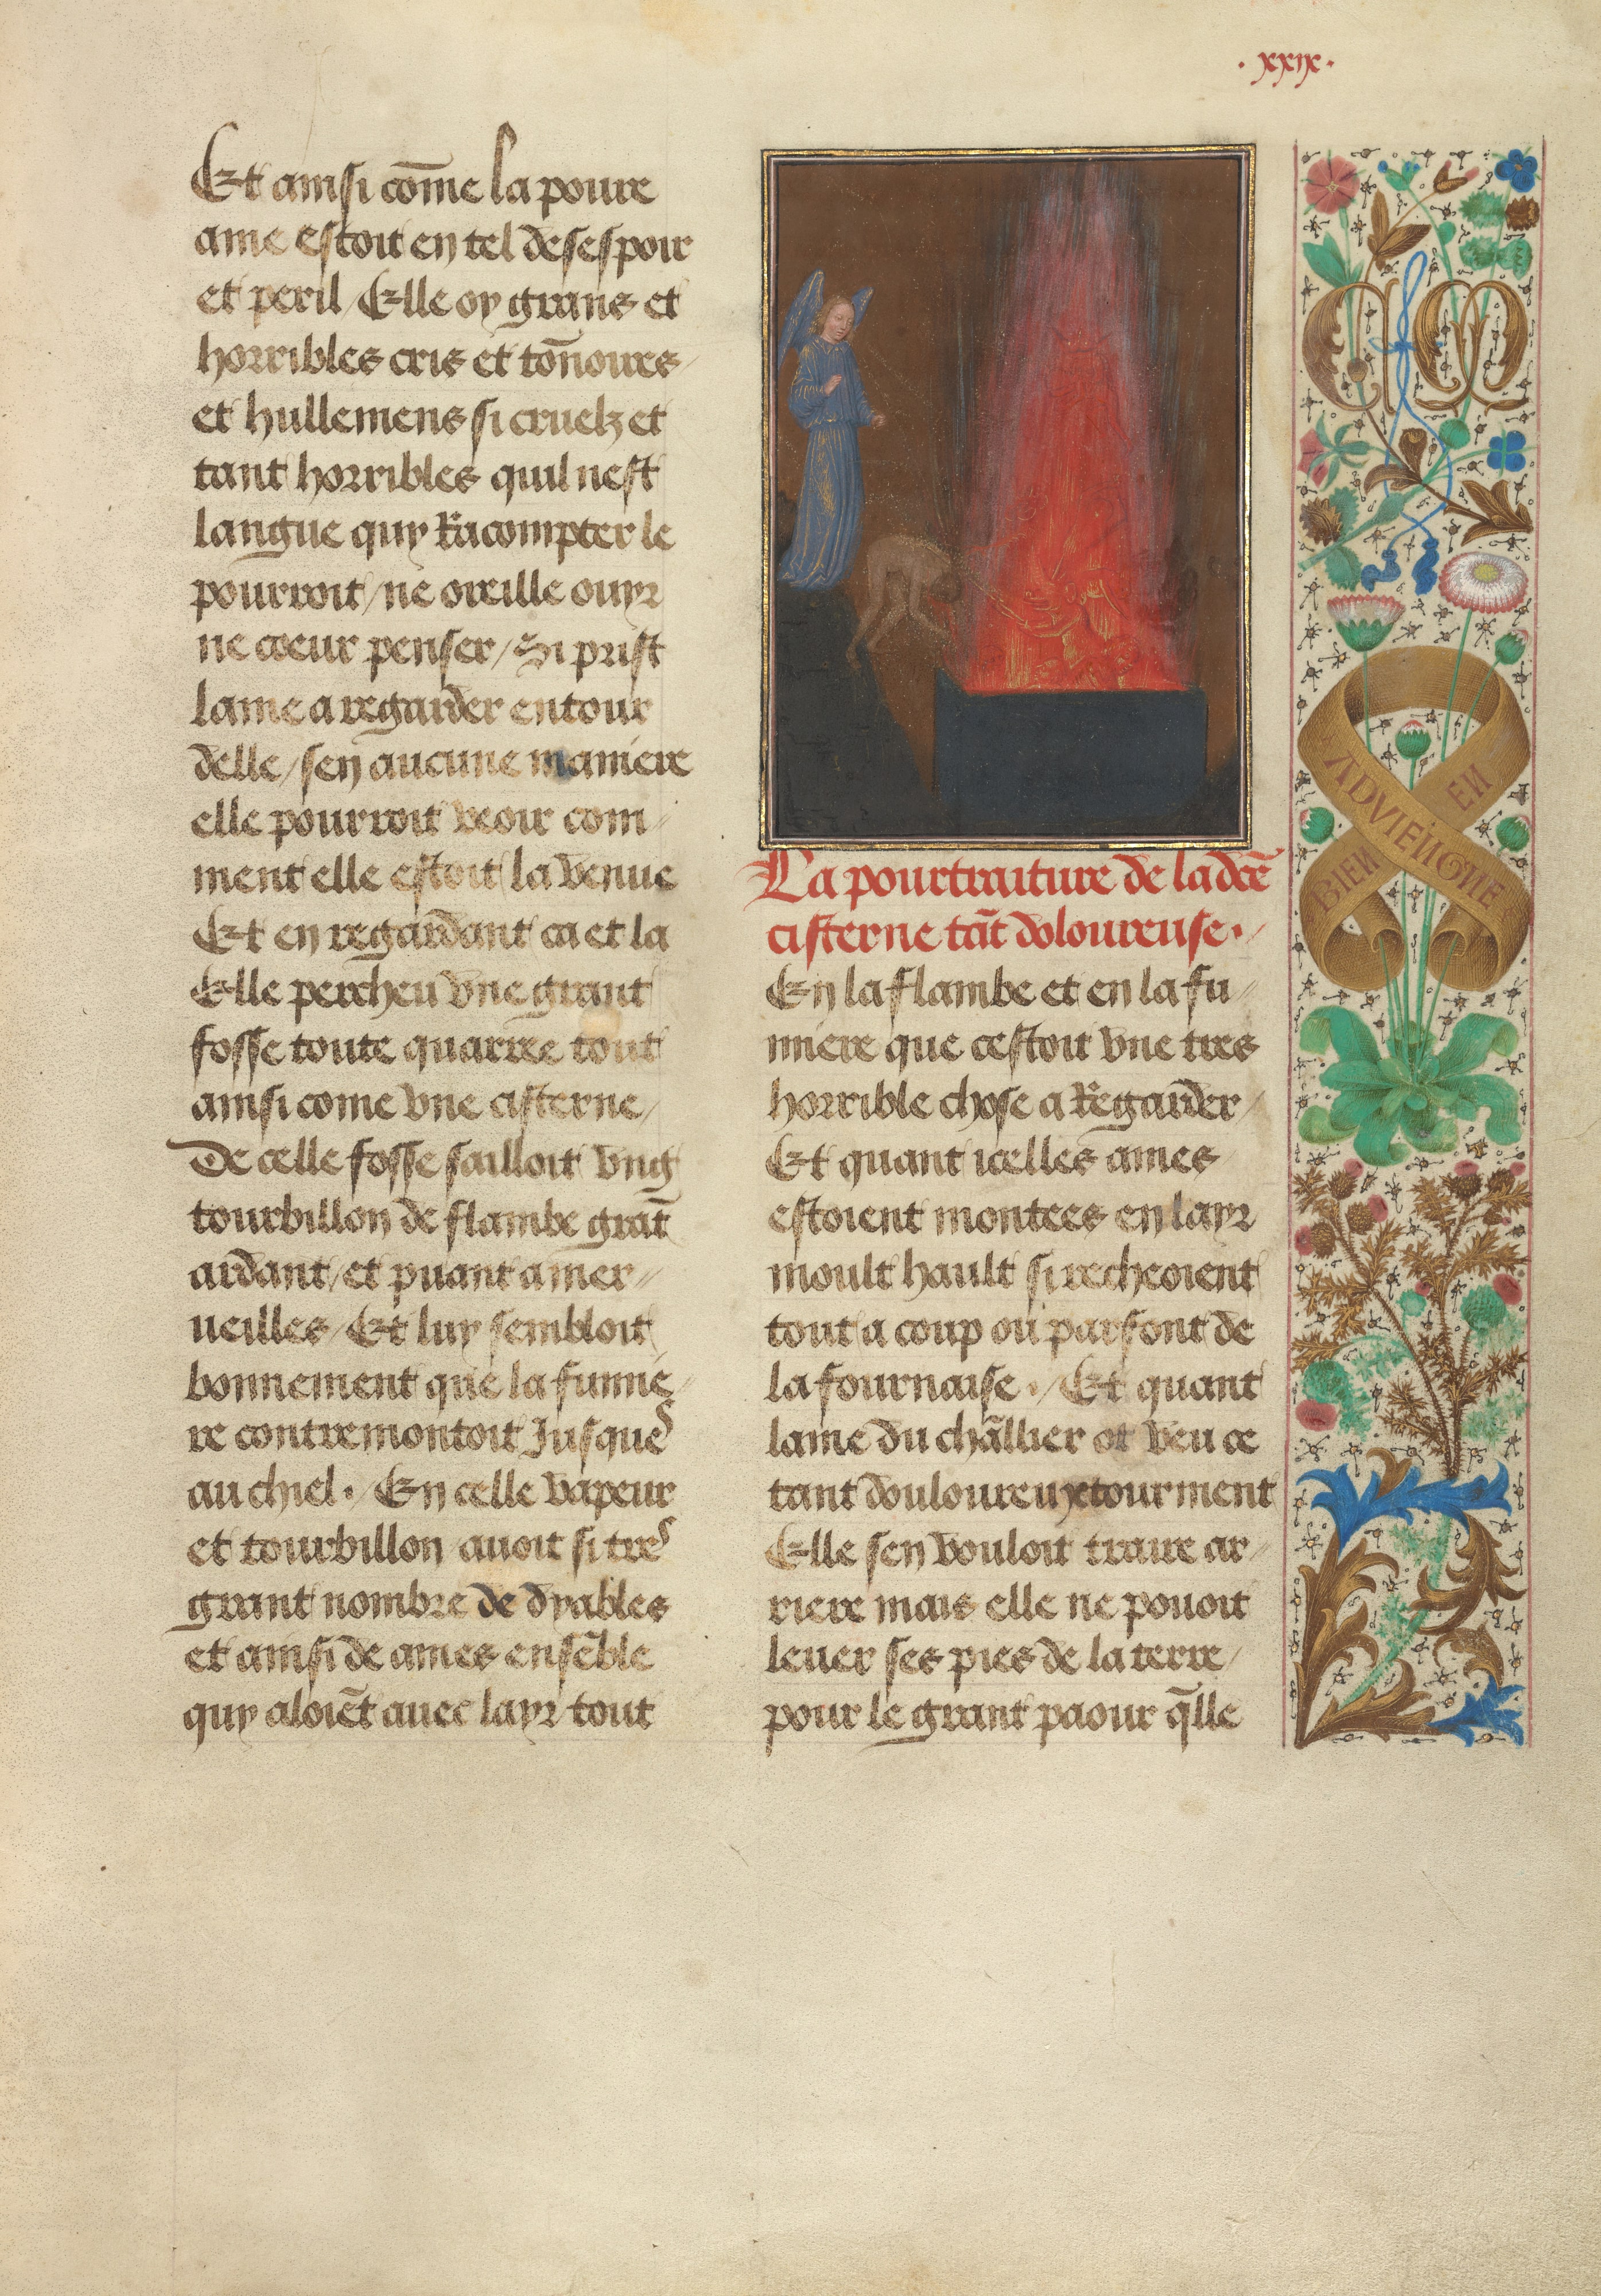 ·xxix·
Et ainsi cõme la poure
ame estoit en tel desespoir
et peril / Elle oy grans et
horribles cris et tõnoires /
et hullemens si cruelz et
tant horribles quil nest
langue quy Racompter le
pourroit / ne oreille ouyr
ne coeur penser / Si prist
lame a regarder entour
delle / sen aucune maniere
elle pourroit veoir com-
ment elle estoit la venue
Et en regardant ca et la
Elle percheu vne grant
fosse toute quarree tout
ainsi come vne cisterne /
De celle fosse sailloit vng
tourbillon de flambe grãt
ardant / et puant a mer-
ueilles / Et luy sembloit
bonnement que la fumie-
re contremontoit Jusques
au chiel · / En celle vapeur
et tourbillon auoit si tres
grant nombre de dyables
et ainsi de ames ensẽble
quy aloiẽt auec layr tout
La pourtraiture de la dcẽ
cisterne tãt doloureuse · /
En la flambe et en la fu-
miere que cestoit vne tres
horrible chose a Regarder /
Et quant icelles ames
estoient montees en layr
moult hault si recheoient
tout a coup ou parfont de
la fournaise · / Et quant
lame du chãllier ot veu ce
tant douloureux tourment
Elle sen vouloit traire ar-
riere mais elle ne pouoit
leuer ses pies de la terre /
pour le grant paour q̃lle
BIEN EN
ADVIENGNE